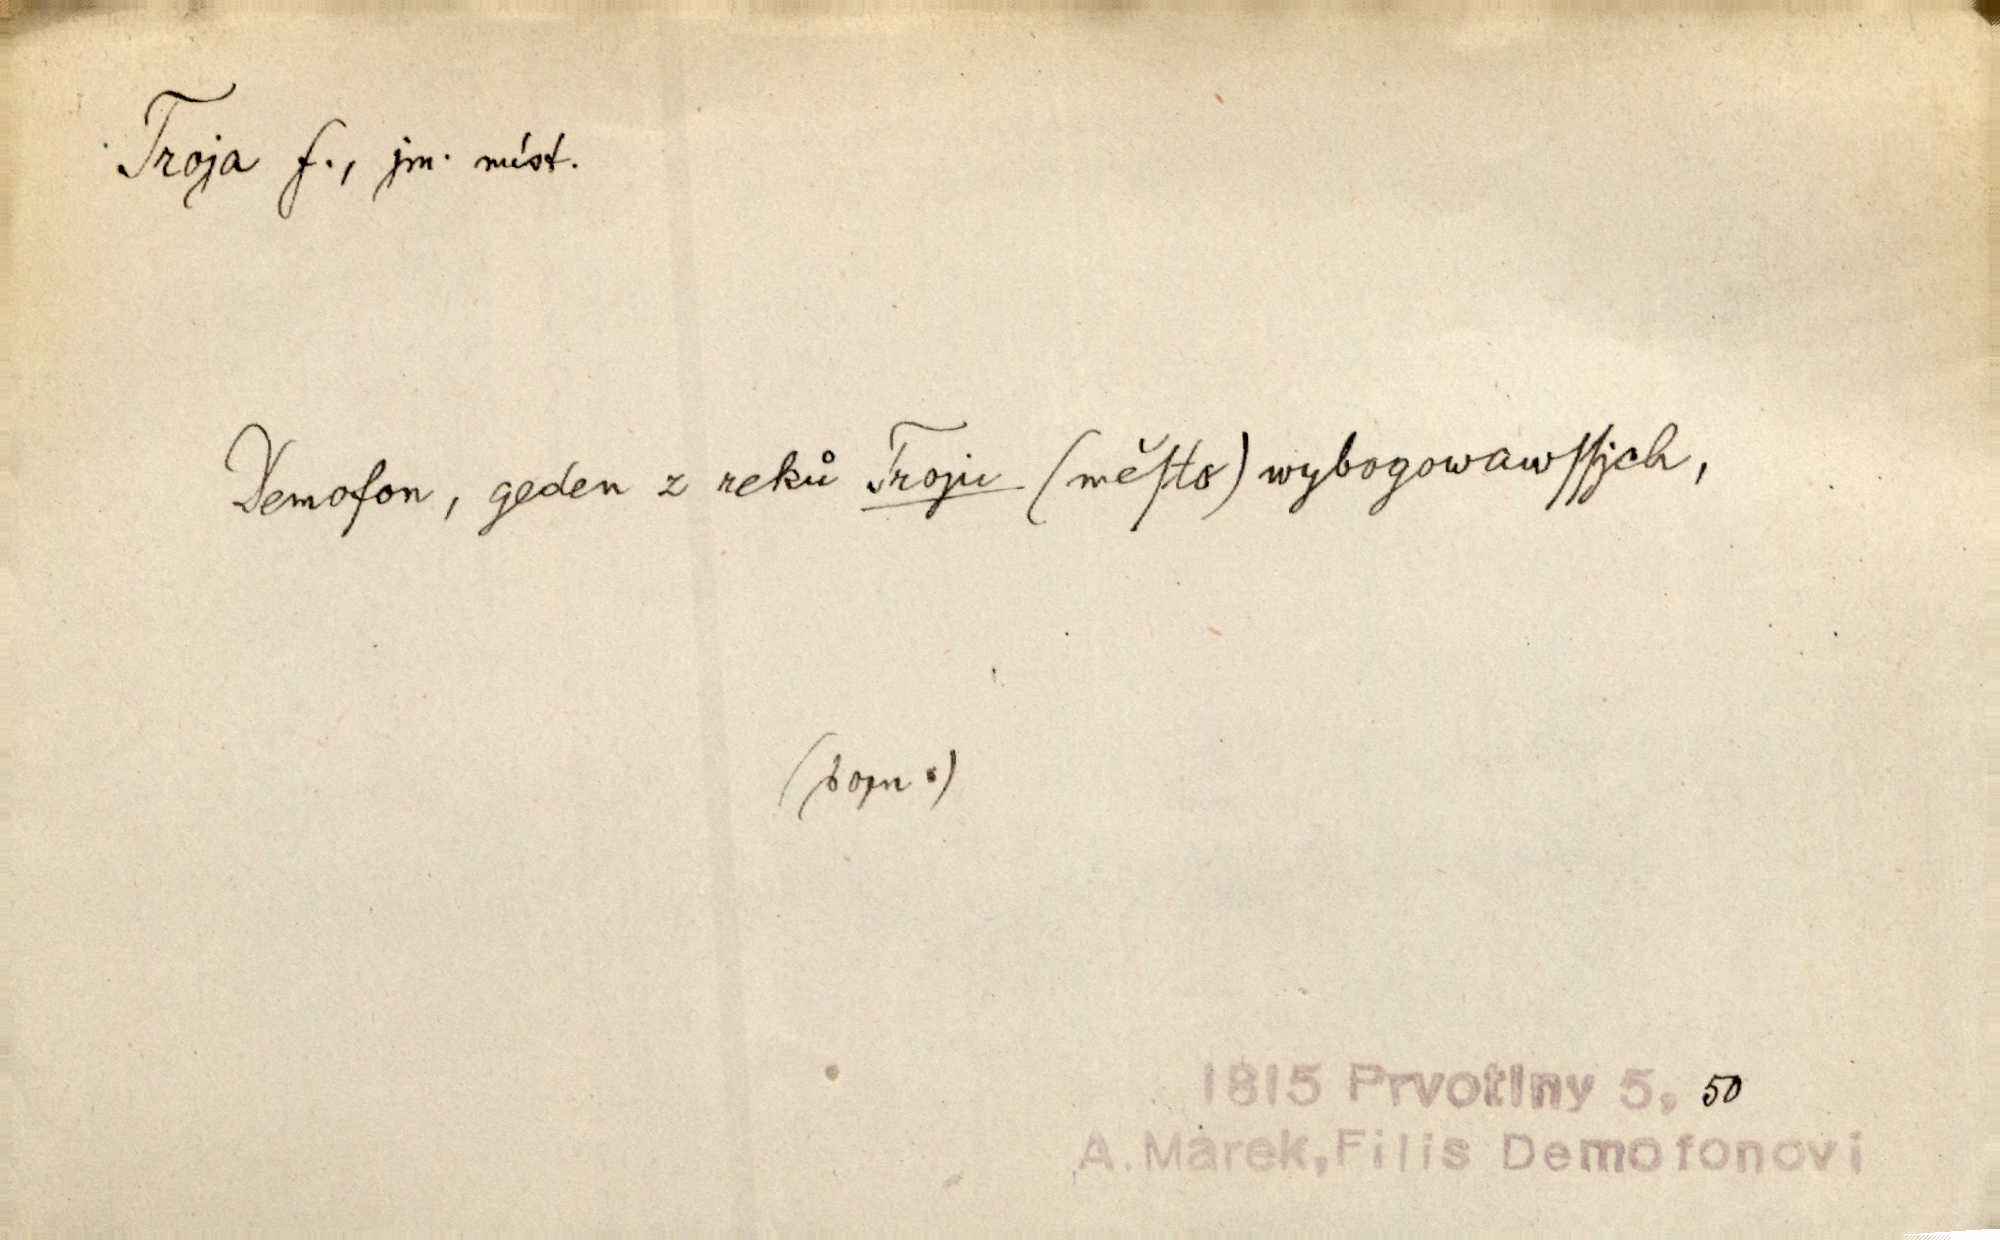 Troja f., jm. míst.
Demofon, geden z reků Troju (město) wybogowawssjch,
(pozn.)
1815 Prvotiny 5, 50
A. Marek, Filis Demofonovi